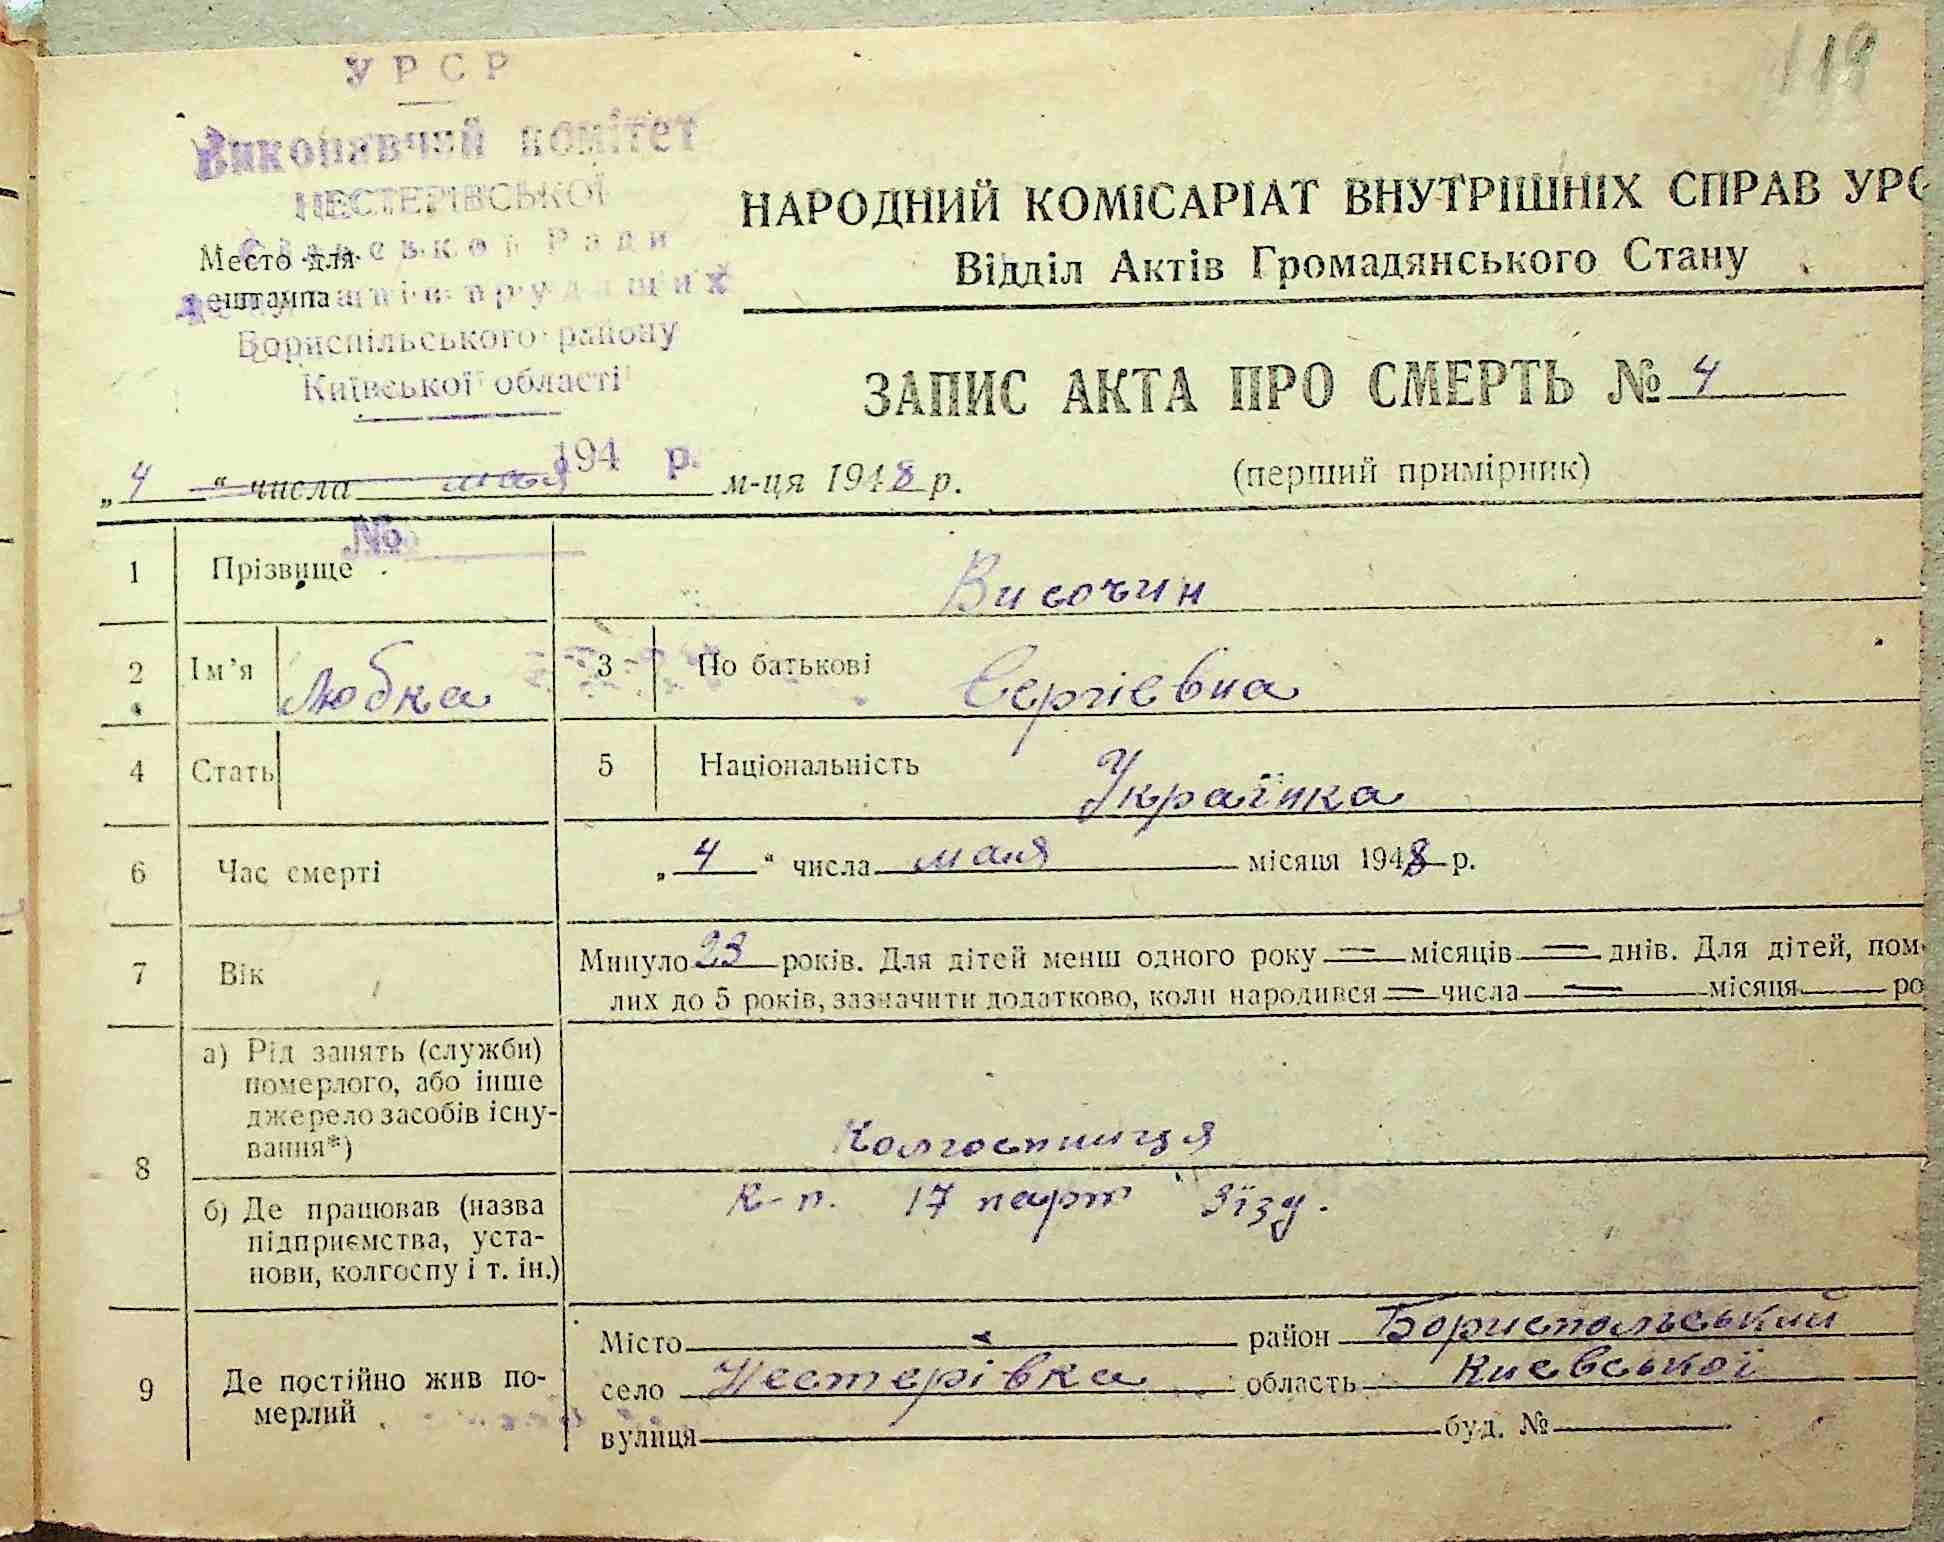 119
УРСР
Виконавчий комітет
НЕСТЕРІВСЬКОЇ
Сільської Ради
депутатів трудящих
Бориспільського району
Київської області
194 р.
№
Место для
штампа
НАРОДНИЙ КОМІСАРІАТ ВНУТРІШНІХ СПРАВ УРС
Відділ Актів Громадянського Стану
ЗАПИС АКТА ПРО СМЕРТЬ № 4
„4“ числа мая м-ця 1948 р.
(перший примірник)
1 Прізвище Височин
2 Ім’я Любка 3 По батькові Сергієвна
4 Стать 5 Національність Українка
6 Час смерті „4“ числа мая місяця 1948 р.
7 Вік Минуло 23 років. Для дітей менш одного року = місяців = днів. Для дітей, пом
лих до 5 років, зазначити додатково, коли народився = числа = місяця ро
8 а) Рід занять (служби)
померлого, або інше
джерело засобів існу-
вання*)
Колгоспниця
б) Де працював (назва
підприємства, уста-
нови, колгоспу і т. ін.)
к-п. 17 парт зїзд.
9 Де постійно жив по-
мерлий
Місто - район Бориспольський
село Нестерівка область Киевської
вулиця буд. №